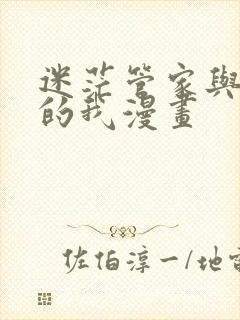 迷茫管家與
的我漫畫
佐伯淳一/地